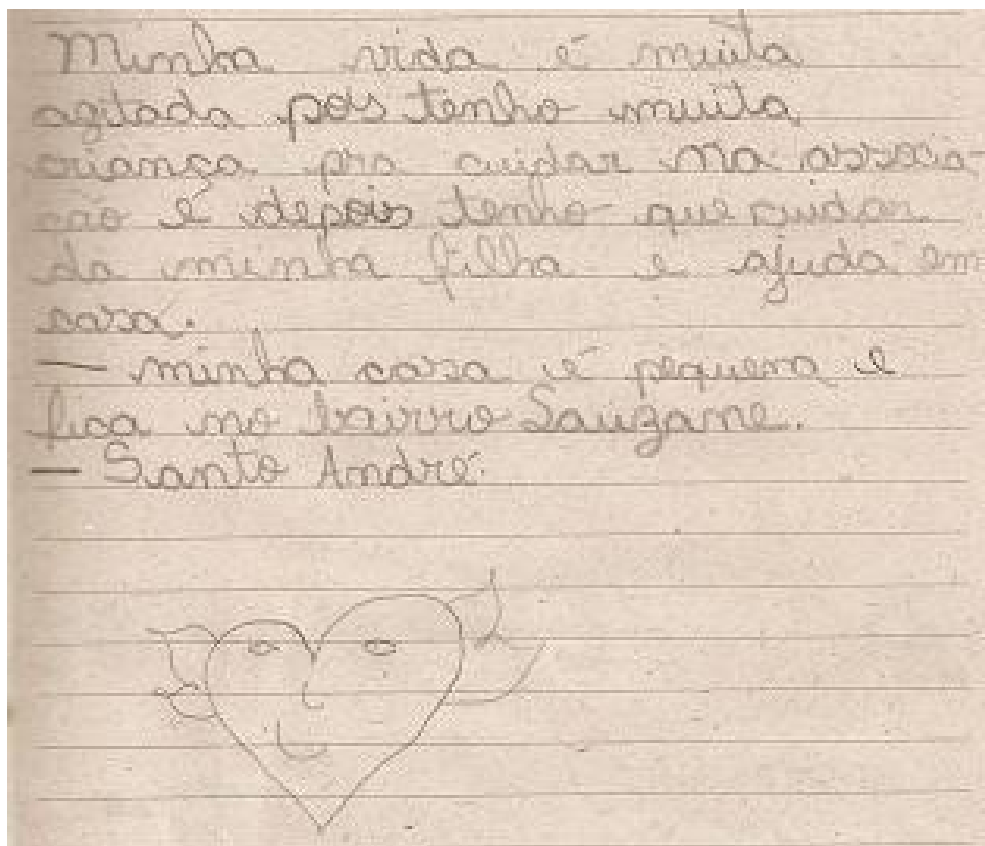 Minha vida é muita
agitada pois tenho muita
criança pra cuidar na associa-
ção é depois tenho que cuidar
da minha filha e ajuda em
casa.
— minha casa é pequena e
fica no bairro Sauzane.
— Santo André.